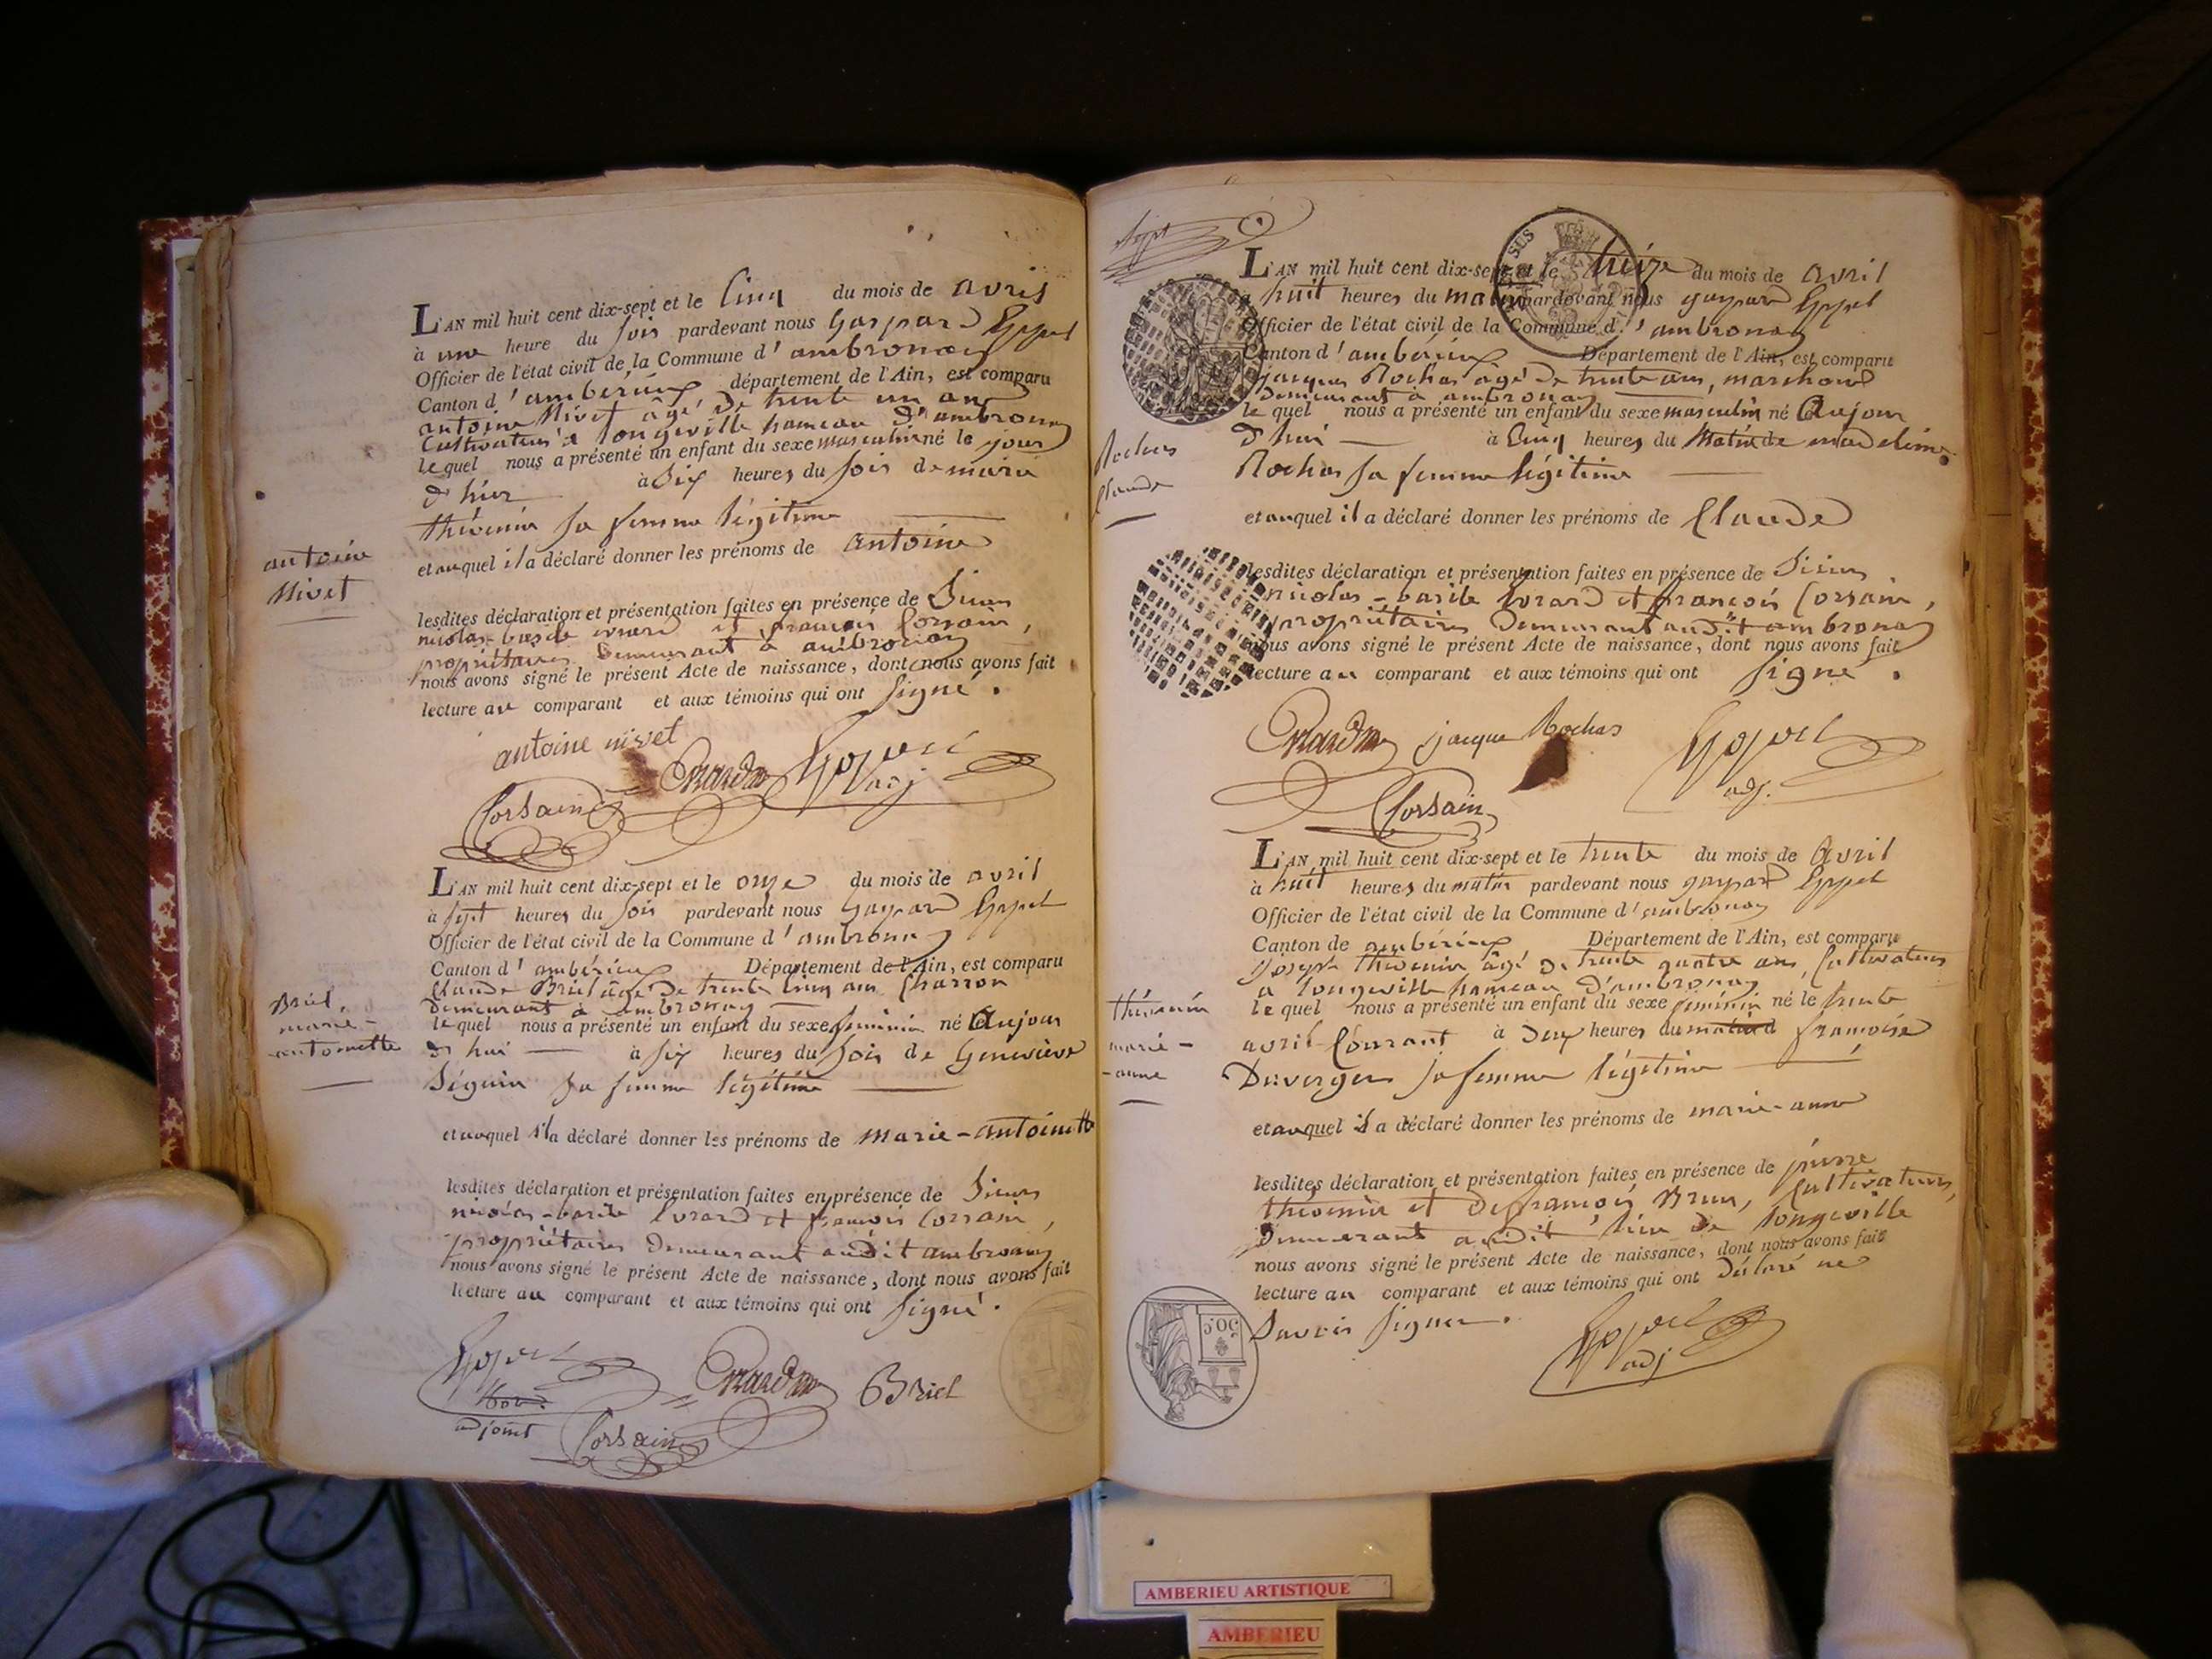 L'AN mil huit cent dix-sept et le Cinq du mois de avril
à une heure du soir pardevant nous Gaspard Eppel
Officier de l'état civil de la Commune d'ambronay
Canton d'ambérieux département de l'Ain, est comparu
antoine Nivet âgé de trente un an
Cultivateur à longeville hameau d'ambronay
lequel nous a présenté un enfant du sexe masculin né le jour
d'hier à Six heures du soir de marie
thévenin sa femme légitime
et auquel il a déclaré donner les prénoms de antoine
antoine
Nivet
lesdites déclaration et présentation faites en présence de Sieurs
nicolas-basile evrard et françois Corsain,
propriétaires demeurant à ambronay
nous avons signé le présent Acte de naissance, dont nous avons fait
lecture au comparant et aux témoins qui ont signé.
antoine nivet
Evrard Eppel
adj
Corsain
L'AN mil huit cent dix-sept et le onze du mois de avril
à sept heures du soir pardevant nous Gaspard Eppel
Officier de l'état civil de la Commune d'ambronay
Canton d'ambérieux Département de l'Ain, est comparu
Claude Briel âgé de trente cinq ans Charron
demeurant à ambronay
lequel nous a présenté un enfant du sexe féminin né Aujour
d'hui à six heures du soir de Geneviève
Séguin sa femme légitime
Briel,
marie-
-antoinette
et auquel il a déclaré donner les prénoms de marie-antoinette
lesdites déclaration et présentation faites en présence de Sieurs
nicolas-basile Evrard et françois Corsain,
propriétaires demeurant audit ambronay
nous avons signé le présent Acte de naissance, dont nous avons fait
lecture au comparant et aux témoins qui ont signé.
Eppel Evrard Briel
adjoint Corsain
Sept
SUS
L'AN mil huit cent dix-sept et le treize du mois de avril
à huit heures du matin pardevant nous gaspard Eppel
Officier de l'état civil de la Commune d'ambronay
Canton d'ambérieux Département de l'Ain, est comparu
jacques Rochas âgé de trente ans, marchand
demeurant à ambronay
lequel nous a présenté un enfant du sexe masculin né Aujour
d'hui à Cinq heures du Matin de madeleine
Rochas sa femme légitime
Rochas
Claude
et auquel il a déclaré donner les prénoms de Claude
lesdites déclaration et présentation faites en présence de Sieurs
nicolas-basile Evrard et françois Corsain,
propriétaires demeurant audit ambronay
nous avons signé le présent Acte de naissance, dont nous avons fait
lecture au comparant et aux témoins qui ont signé.
Evrard jacque Rochas Eppel
adj.
Corsain
L'AN mil huit cent dix-sept et le trente du mois de Avril
à huit heures du matin pardevant nous gaspard Eppel
Officier de l'état civil de la Commune d'ambronay
Canton de ambérieux Département de l'Ain, est comparu
joseph thévenin âgé de trente quatre ans, Cultivateur
à longeville hameau d'ambronay
lequel nous a présenté un enfant du sexe féminin né le trente
avril Courant à deux heures du matin d françoise
Duverger sa femme légitime
thévenin
marie-
-anne
et auquel il a déclaré donner les prénoms de marie-anne
lesdites déclaration et présentation faites en présence de pierre
thévenin et de françois Brun, Cultivateurs,
demeurant audit lieu de longeville
nous avons signé le présent Acte de naissance, dont nous avons fait
lecture au comparant et aux témoins qui ont déclaré ne
savoir signer.
50C
Eppel
adj
AMBERIEU ARTISTIQUE
AMBERIEU